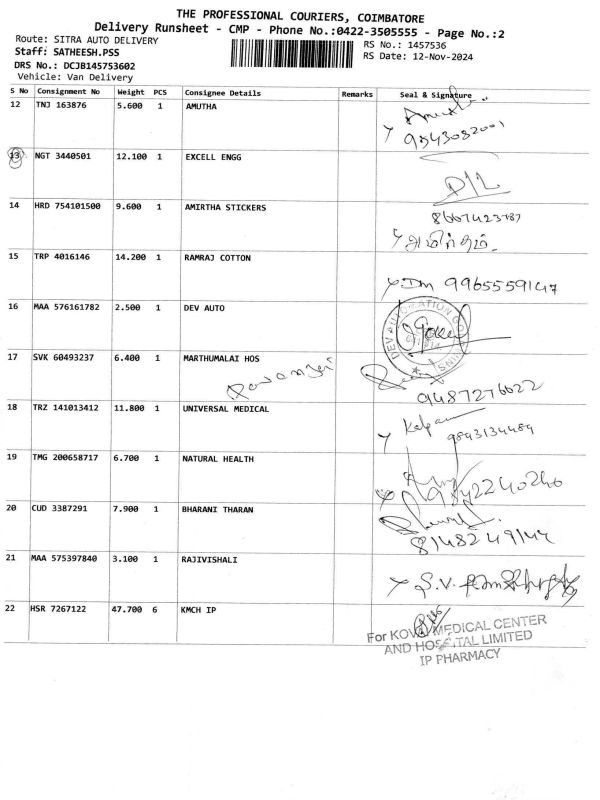 THE PROFESSIONAL COURIERS, COIMBATORE
Delivery Runsheet - CMP - Phone No.:0422-3505555 - Page No.:2
Route: SITRA AUTO DELIVERY
RS No.: 1457536
Staff: SATHEESH.PSS
RS Date: 12-Nov-2024
DRS No.: DCJB145753602
Vehicle: Van Delivery
S No Consignment No Weight PCS Consignee Details Remarks Seal & Signature
12 TNJ 163876 5.600 1 AMUTHA
13 NGT 3440501 12.100 1 EXCELL ENGG
14 HRD 754101500 9.600 1 AMIRTHA STICKERS
அமிர்தம்
15 TRP 4016146 14.200 1 RAMRAJ COTTON
9965559147
16 MAA 576161782 2.500 1 DEV AUTO
DEV AUTOMATION
17 SVK 60493237 6.400 1 MARTHUMALAI HOS
9487276622
18 TRZ 141013412 11.800 1 UNIVERSAL MEDICAL
9843134484
19 TMG 200658717 6.700 1 NATURAL HEALTH
20 CUD 3387291 7.900 1 BHARANI THARAN
8148249144
21 MAA 575397840 3.100 1 RAJIVISHALI
22 HSR 7267122 47.700 6 KMCH IP
For KOVAI MEDICAL CENTER
AND HOSPITAL LIMITED
IP PHARMACY